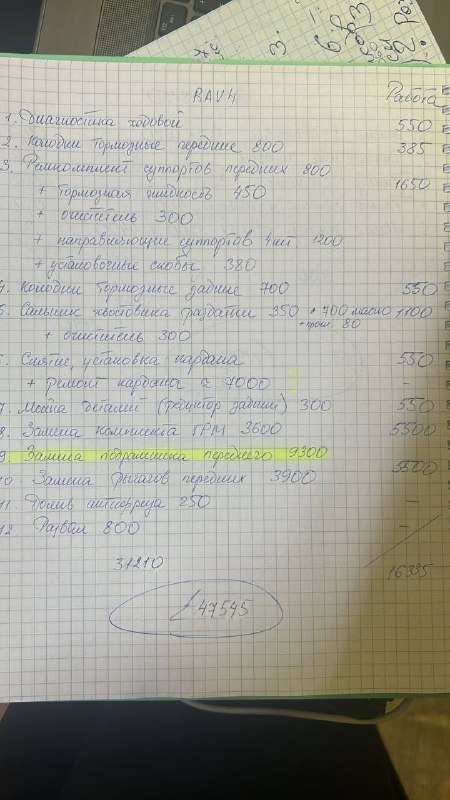 RAV4 Работа
1. Диагностика ходовой 550
2. Колодки тормозные передние 800 385
3. Ремкомплект суппортов передних 800 1650
+ тормозная жидкость 450
+ очиститель 300
+ направляющие суппортов 4шт. 1200
+ установочные скобы 380
4. Колодки тормозные задние 700 550
5. Сальник хвостовика раздатки 350 + 700 масло 1100
+ прокл. 80
+ очиститель 300
6. Снятие, установка кардана 550
+ ремонт кардана ≈ 7000 ? -
7. Мойка деталей (редуктор задний) 300 550
8. Замена комплекта ГРМ 3600 5500
9 Замена подрамника переднего 9300 5500
10. Замена рычагов передних 3900
11. Долив антифриза 250 -
12. Развал 800 -
31210 16335
Σ 47545